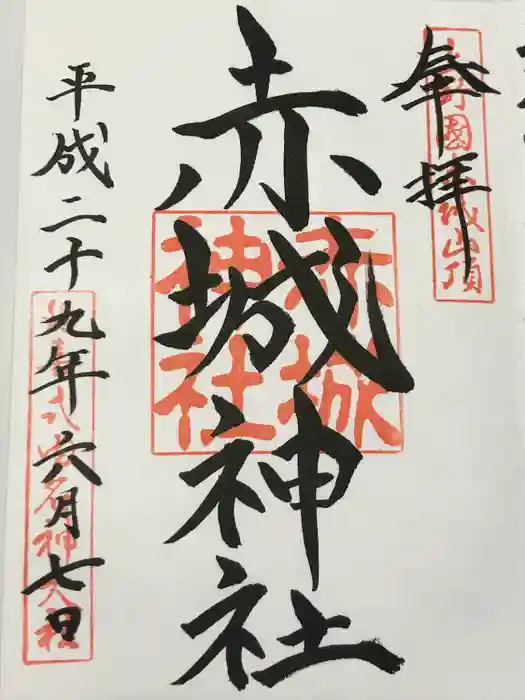 奉拝
上野國赤城山頂
赤城神社
赤城神社
平成二十九年六月七日
延喜式内名神大社